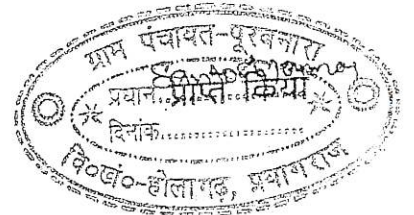 ग्राम पंचायत-पूरबनारा
प्रधान..प्राप्त किया
दिनांक..............
वि०खं०-होलागढ़, प्रयागराज